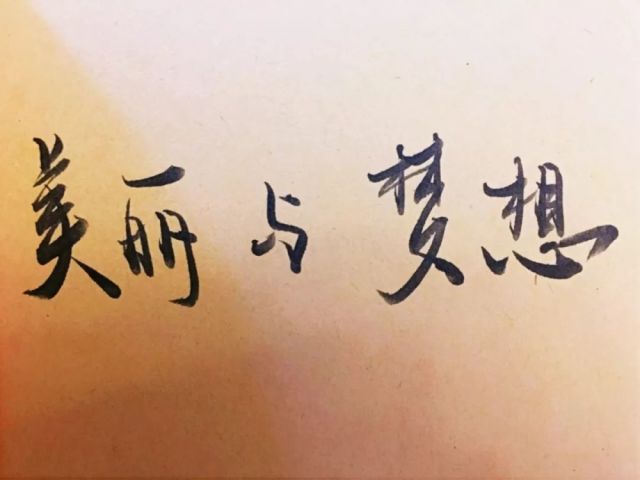 美丽与梦想